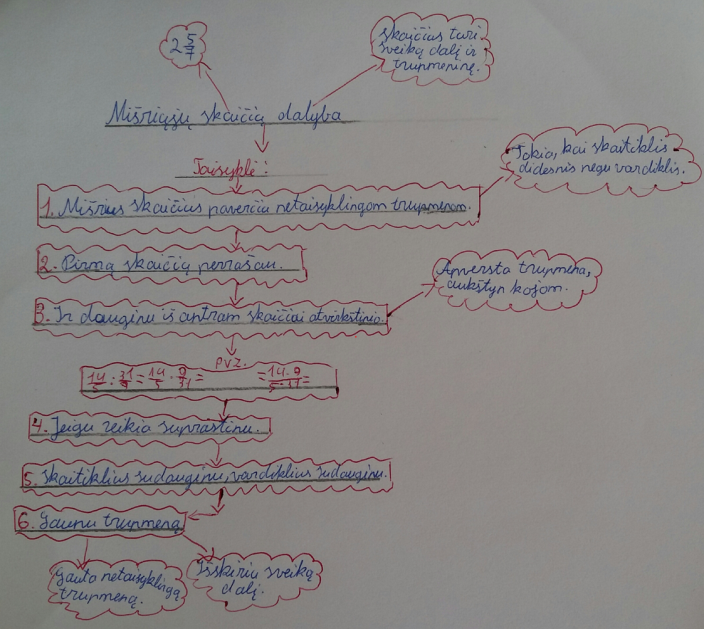 2 5/7
skaičius turi
sveiką dalį ir
trupmeninę.
Mišriųjų skaičių dalyba
Taisyklė:
Tokia, kai skaitiklis
didesnis negu vardiklis.
1. Mišrius skaičius paverčiu netaisyklingom trupmenom.
2. Pirmą skaičių perrašau.
Apversta trupmena,
aukštyn kojom.
3. Ir dauginu iš antram skaičiui atvirkštinio.
PVZ.
14/5 : 31/9 = 14/5 · 9/31 = = 14·9/5·11 =
4. Jeigu reikia suprastinu.
5. Skaitiklius sudauginu, vardiklius sudauginu.
6. Gaunu trupmeną
Gauta netaisyklingą
trupmeną.
Išskiriu sveiką
dalį.